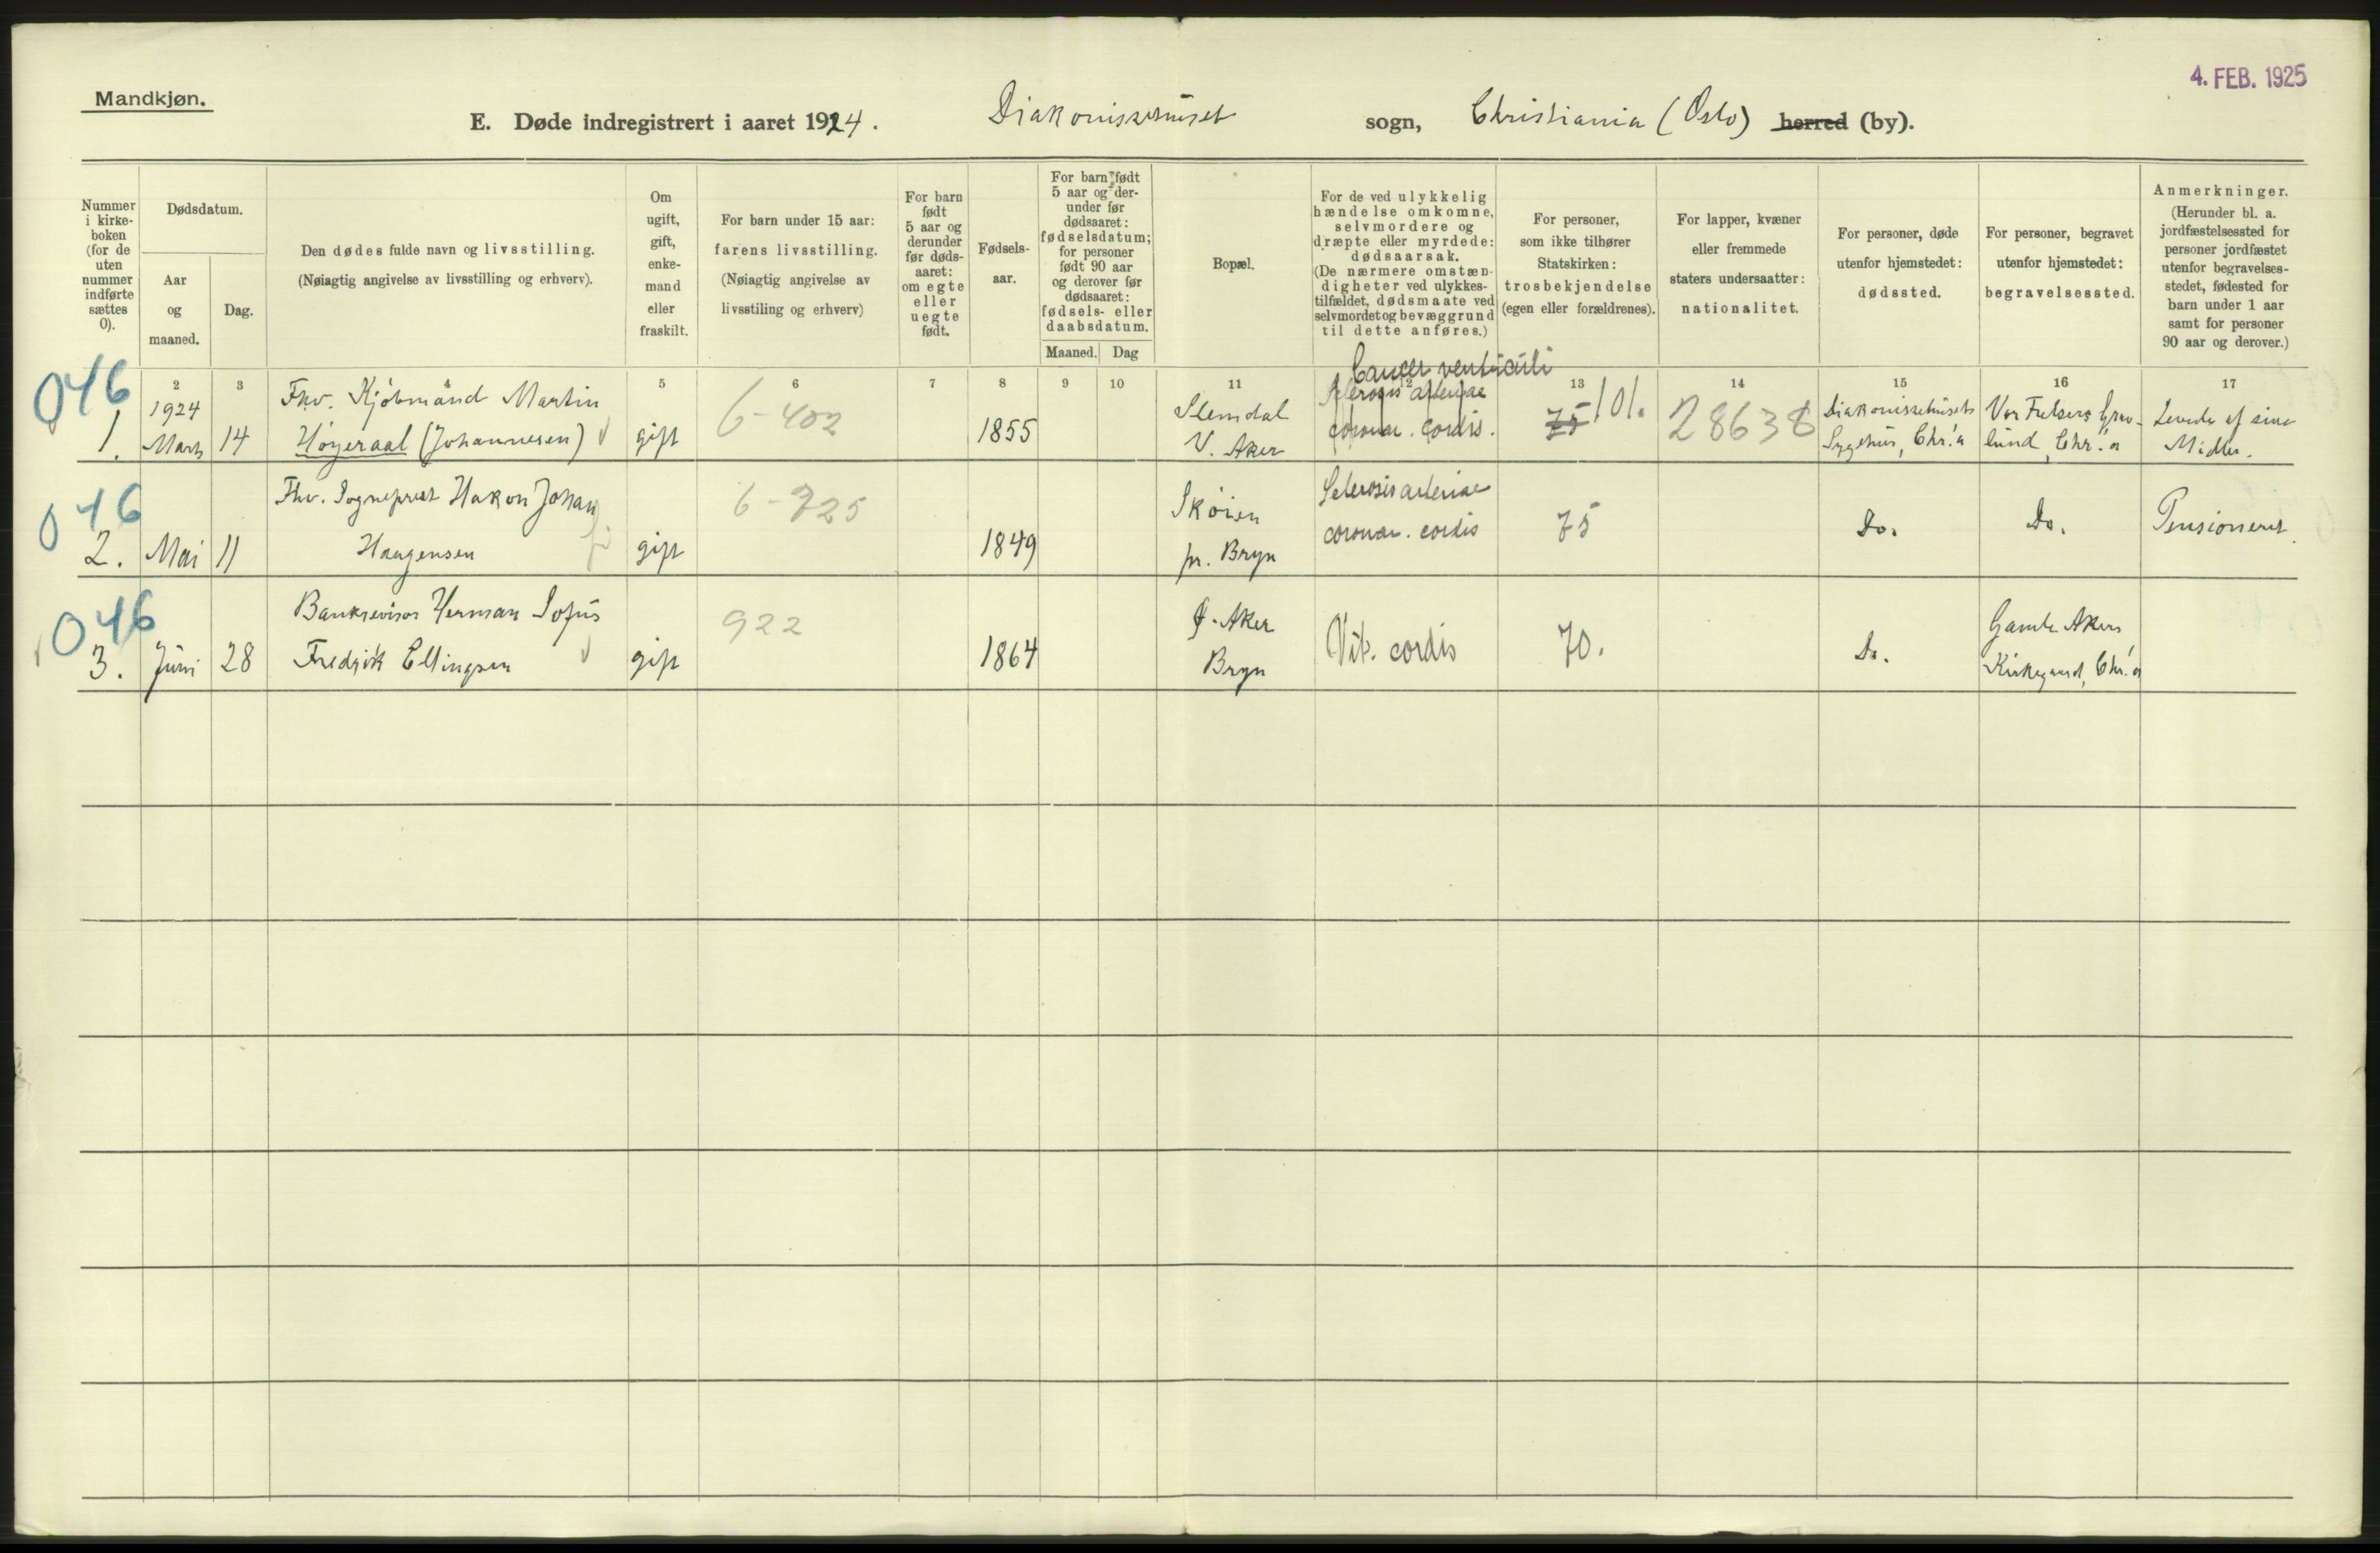 4. FEB. 1925
Mandkjøn.
E. Døde indregistrert i aaret 1924. Diakonissehuset sogn, Christiania (Oslo) herred (by).
Nummer
i kirke-
boken
(for de
uten
nummer
indførte
sættes
0).
Dødsdatum.
Aar
og
maaned.
Dag.
Den dødes fulde navn og livsstilling.
(Nøiagtig angivelse av livsstilling og erhverv).
Om
ugift,
gift,
enke-
mand
eller
fraskilt.
For barn under 15 aar:
farens livsstilling.
(Nøiagtig angivelse av
livsstiling og erhverv)
For barn
født
5 aar og
derunder
før døds-
aaret:
om egte
eller
uegte
født.
Fødsels-
aar.
For barn født
5 aar og der-
under før
dødsaaret:
fødselsdatum;
for personer
født 90 aar
og derover før
dødsaaret:
fødsels- eller
daabsdatum.
Maaned. Dag
Bopæl.
For de ved ulykkelig
hændelse omkomne,
selvmordere og
dræpte eller myrdede:
dødsaarsak.
(De nærmere omstæn-
digheter ved ulykkes-
tilfældet, dødsmaate ved
selvmordet og bevæggrund
til dette anføres.)
For personer,
som ikke tilhører
Statskirken:
trosbekjendelse
(egen eller forældrenes).
For lapper, kvæner
eller fremmede
staters undersaatter:
nationalitet.
For personer, døde
utenfor hjemstedet:
dødssted.
For personer, begravet
utenfor hjemstedet:
begravelsessted.
Anmerkninger.
(Herunder bl. a.
jordfæstelsessted for
personer jordfæstet
utenfor begravelses-
stedet, fødested for
barn under 1 aar
samt for personer
90 aar og derover.)
2 3 4 5 6 7 8 9 10 11 12 13 14 15 16 17
046
1.
1924
Marts
14
Fhv. Kjøbmand Martin
Høyeraal (Johannesen)
gift
6-402
1855
Slemdal
V. Aker
Cancer ventriculi
Sclerosis arteriae
coronar. cordis.
75 101.
28638
Diakonissehusets
Sygehus, Chr.'a
Vor Frelsers Grav-
lund, Chr.'a
Levede af sine
Midler.
046
2.
Mai
11
Fhv. Sogneprest Hakon Johan
Haagensen
gift
6-725
1849
Skøien
pr. Bryn
Sclerosis arteriae
coronar. cordis
75
Do.
Do.
Pensioneret.
046
3.
Juni
28
Bankrevisor Herman Sofus
Fredrik Ellingsen
gift
922
1864
Ø. Aker
Bryn
Vit. cordis
70.
Do.
Gamle Akers
Kirkegaard, Chr.'a